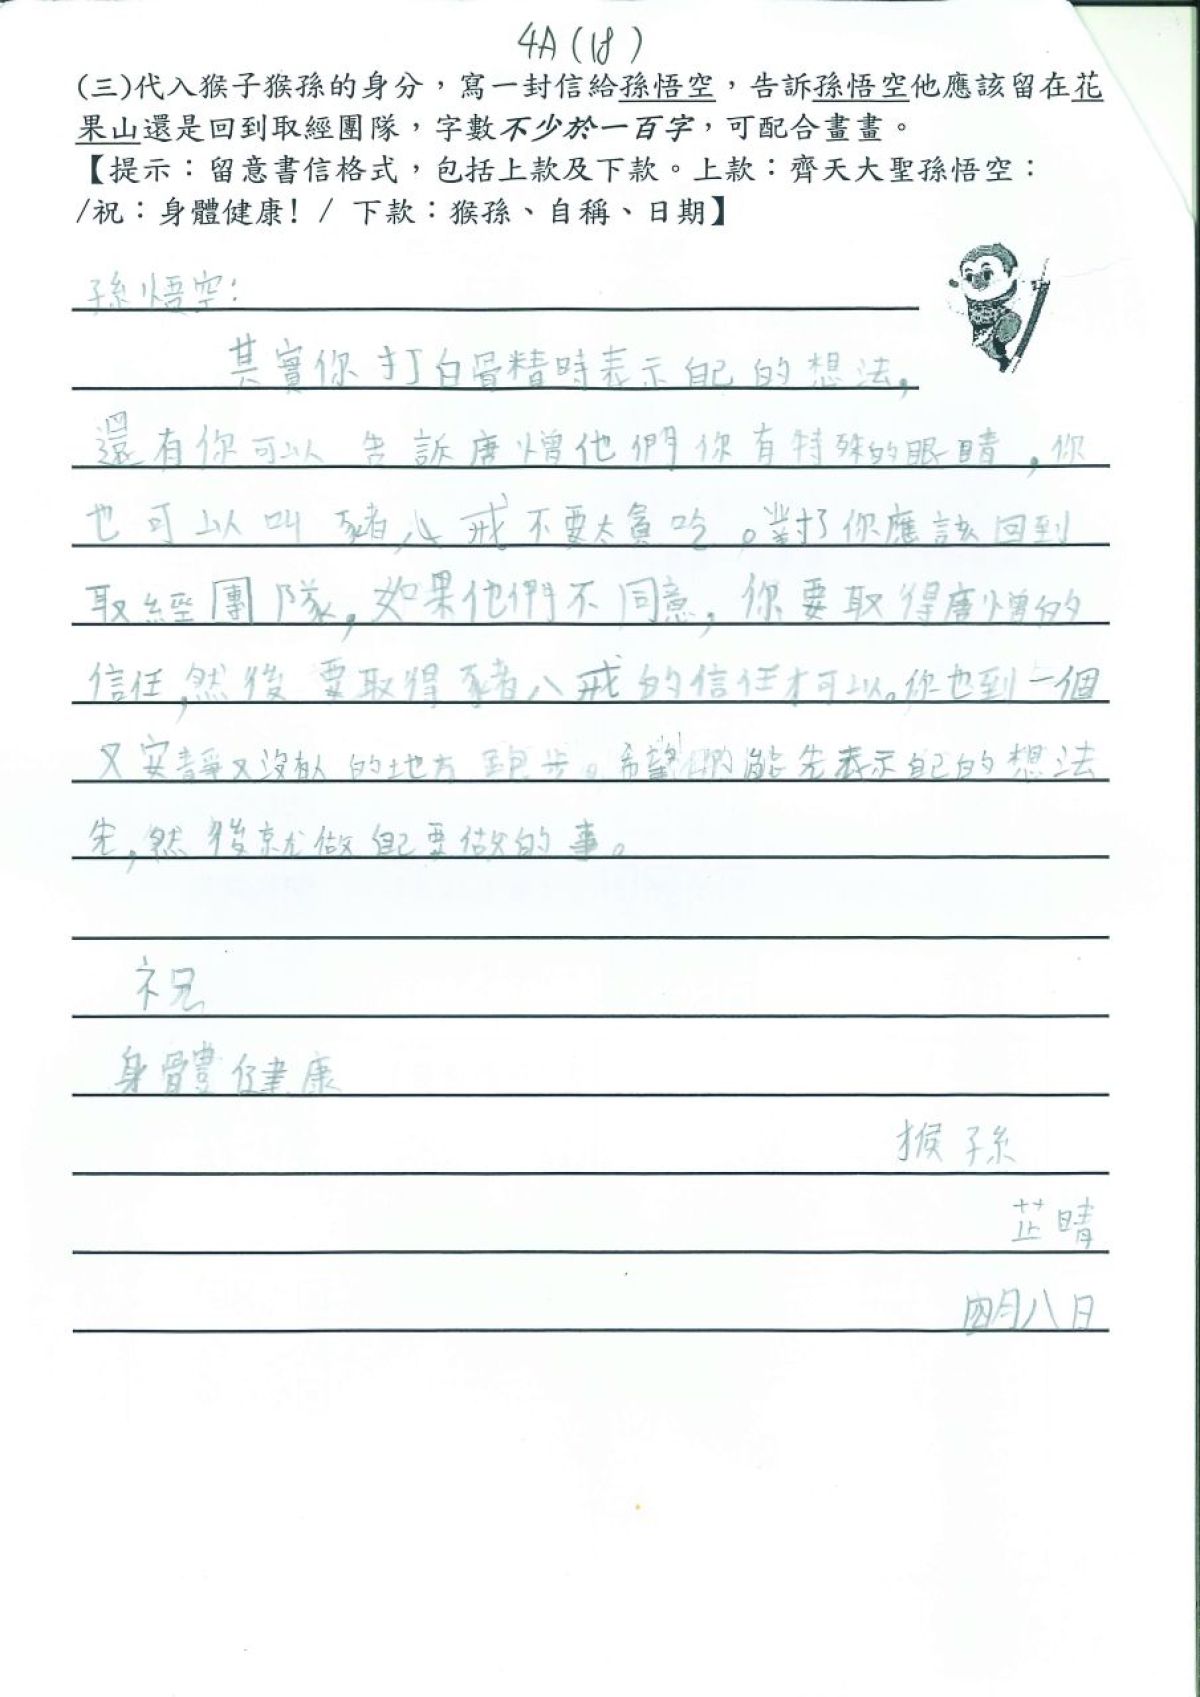 4A(18)
(三)代入猴子猴孫的身分，寫一封信給孫悟空，告訴孫悟空他應該留在花
果山還是回到取經團隊，字數不少於一百字，可配合畫畫。
【提示：留意書信格式，包括上款及下款。上款：齊天大聖孫悟空：
/祝：身體健康! / 下款：猴孫、自稱、日期】
孫悟空：
其實你打白骨精時表示自己的想法，
還有你可以告訴唐憎他們你有特殊的眼睛，你
也可以叫豬八戒不要太貪吃。對了你應該回到
取經團隊，如果他們不同意，你要取得唐憎的
信任，然後要取得豬八戒的信任才可以。你也到一個
又安靜又沒有人的地方跑步。希望你能先表示自己的想法
先，然後就做自己要做的事。
祝
身體健康
猴孫
芷晴
四月八日